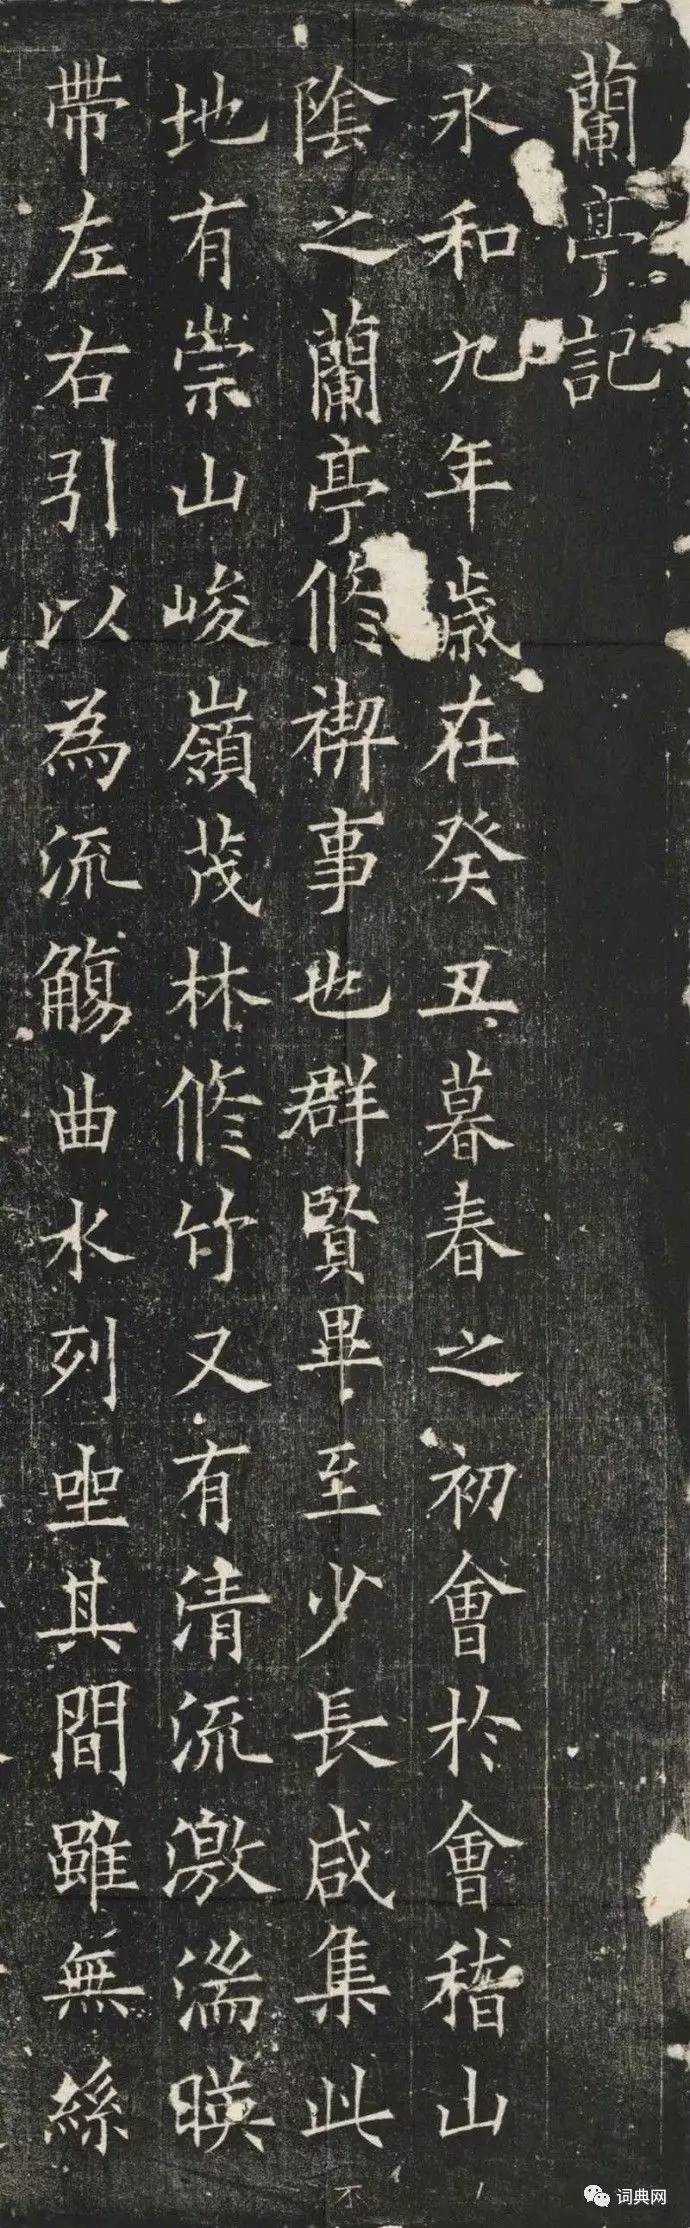 蘭亭記
永和九年歲在癸丑暮春之初會於會稽山
陰之蘭亭修禊事也群賢畢至少長咸集此
地有崇山峻嶺茂林修竹又有清流激湍暎
帶左右引以為流觴曲水列坐其間雖無絲
不
词典网